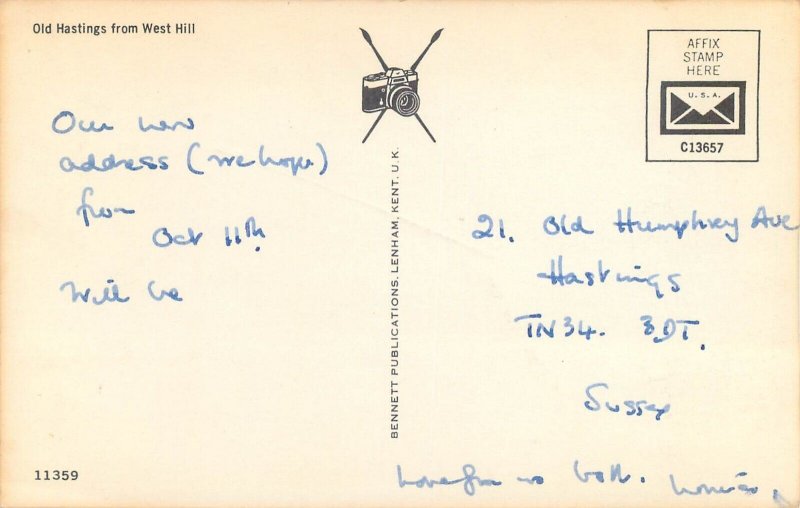 Old Hastings from West Hill
Our new
address (we hope)
from
Oct 11th.
Will be
11359
BENNETT PUBLICATIONS. LENHAM, KENT. U.K.
AFFIX
STAMP
HERE
U.S.A.
C13657
21. Old Humphrey Ave
Hastings
TN34. 3DT.
Sussex
Love from us both.